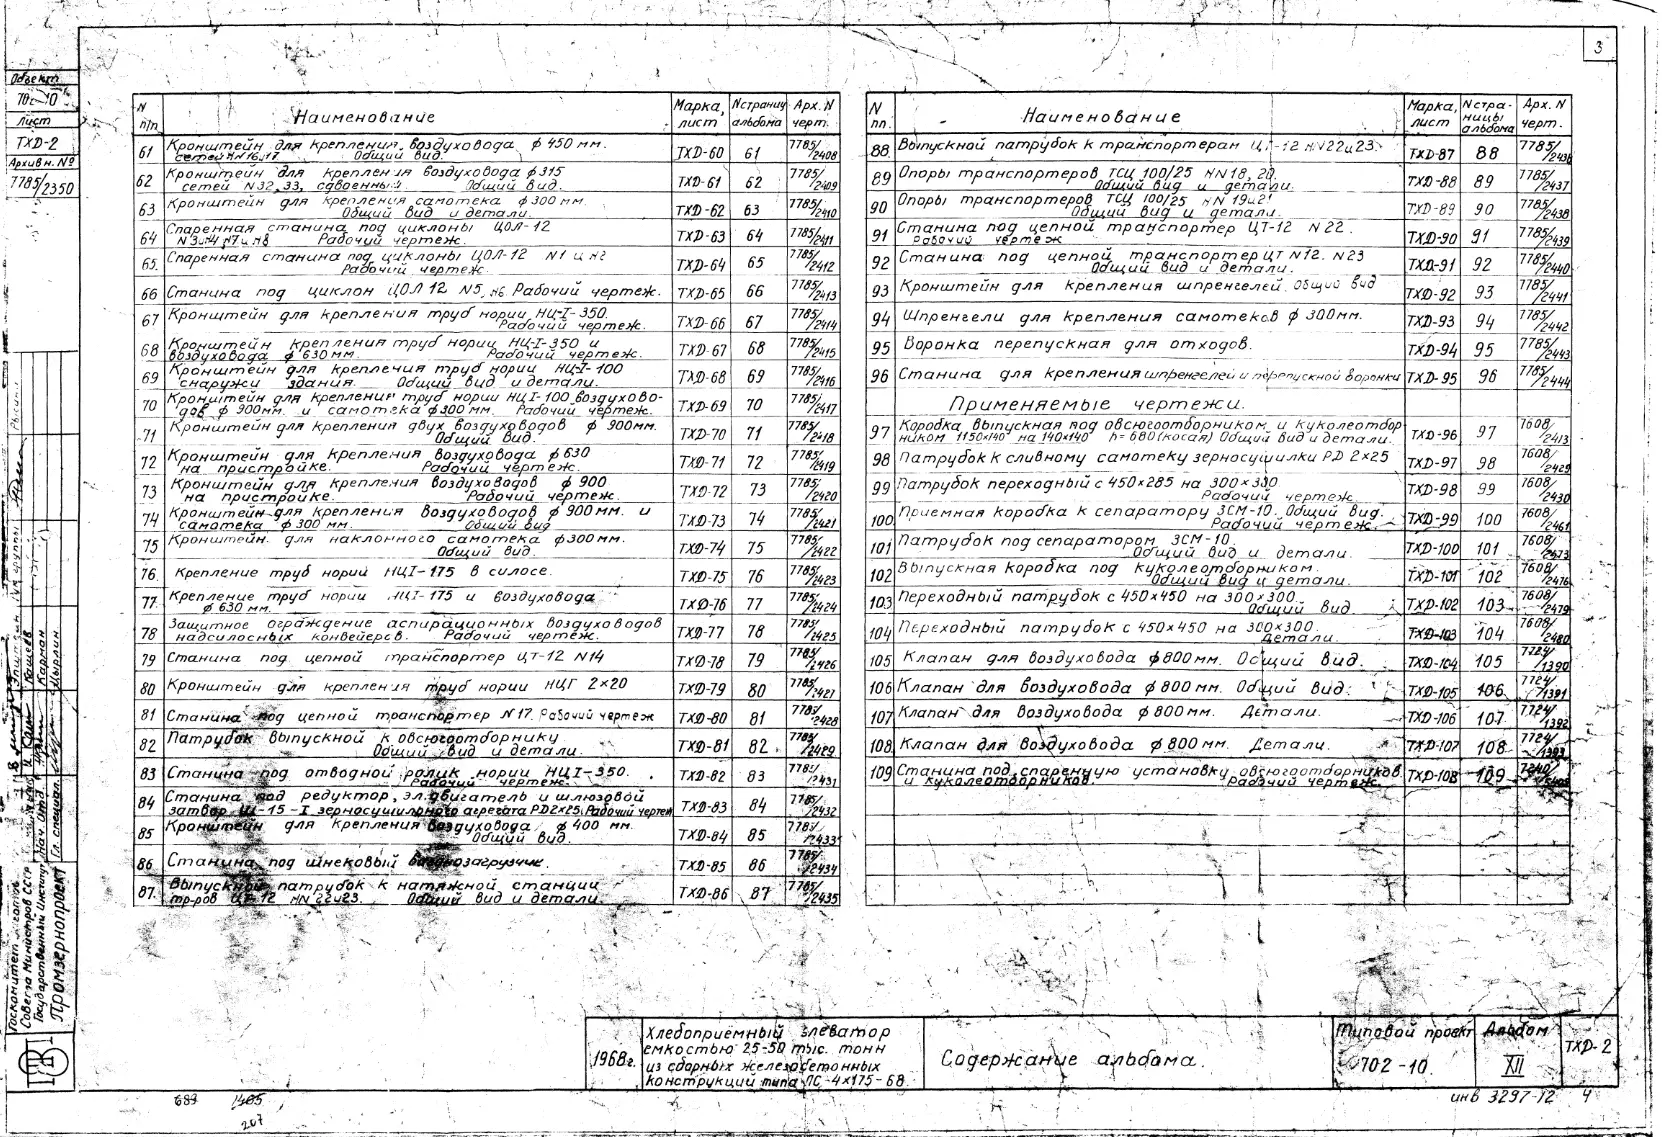 3
Объект
70.-10
Лист
ТХД-2
Архивн. №
7785/2350
N п/п | Наименование | Марка, лист | N страниц альбома | Арх. N черт.
61 | Кронштейн для крепления воздуховода ф 450 мм. сетей NN 16,17. Общий вид. | ТХД-60 | 61 | 7785/2408
62 | Кронштейн для крепления воздуховода ф315 сетей N32,33, сдвоенный. Общий вид. | ТХД-61 | 62 | 7785/2409
63 | Кронштейн для крепления самотека ф300мм. Общий вид и детали. | ТХД-62 | 63 | 7785/2410
64 | Спаренная станина под циклоны ЦОЛ-12 N3и4 N7и N8 Рабочий чертеж. | ТХД-63 | 64 | 7785/2411
65. | Спаренная станина под циклоны ЦОЛ-12 N1 и N2 Рабочий чертеж. | ТХД-64 | 65 | 7785/2412
66 | Станина под циклон ЦОЛ 12 N5, N6 Рабочий чертеж. | ТХД-65 | 66 | 7785/2413
67 | Кронштейн для крепления труб нории НЦ-I-350. Рабочий чертеж. | ТХД-66 | 67 | 7785/2414
68 | Кронштейн крепления труб нории НЦ-I-350 и воздуховода ф 630мм. Рабочий чертеж. | ТХД-67 | 68 | 7785/2415
69 | Кронштейн для крепления труб нории НЦ-I-100 снаружи здания. Общий вид и детали. | ТХД-68 | 69 | 7785/2416
70 | Кронштейн для крепления труб нории НЦI-100 воздуховодов ф 900мм. и самотека ф300мм. Рабочий чертеж. | ТХД-69 | 70 | 7785/2417
71 | Кронштейн для крепления двух воздуховодов ф 900мм. Общий вид. | ТХД-70 | 71 | 7785/2418
72 | Кронштейн для крепления воздуховода ф630 на пристройке. Рабочий чертеж. | ТХД-71 | 72 | 7785/2419
73 | Кронштейн для крепления воздуховодов ф 900 на пристройке. Рабочий чертеж. | ТХД-72 | 73 | 7785/2420
74 | Кронштейн для крепления воздуховодов ф 900мм. и самотека ф300 мм. Общий вид | ТХД-73 | 74 | 7785/2421
75 | Кронштейн. для наклонного самотека ф300мм. Общий вид. | ТХД-74 | 75 | 7785/2422
76. | Крепление труб норий НЦI-175 в силосе. | ТХД-75 | 76 | 7785/2423
77. | Крепление труб нории НЦI-175 и воздуховода ф 630 мм. | ТХД-76 | 77 | 7785/2424
78 | Защитное ограждение аспирационных воздуховодов надсилосных конвейеров. Рабочий чертеж. | ТХД-77 | 78 | 7785/2425
79 | Станина под цепной транспортер ЦТ-12 N14 | ТХД-78 | 79 | 7785/2426
80 | Кронштейн для крепления труб нории НЦГ 2×20 | ТХД-79 | 80 | 7785/2427
81 | Станина под цепной транспортер N17. Рабочий чертеж | ТХД-80 | 81 | 7785/2428
82 | Патрубок выпускной к овсюгоотборнику. Общий вид и детали. | ТХД-81 | 82. | 7785/2429
83 | Станина под отводной ролик нории НЦI-350. Рабочий чертеж. | ТХД-82 | 83 | 7785/2431
84 | Станина под редуктор, эл.двигатель и шлюзовой затвор Ш-15-I зерносушильного агрегата РД2×25. Рабочий чертеж | ТХД-83 | 84 | 7785/2432
85 | Кронштейн для крепления воздуховода ф 400 мм. Общий вид. | ТХД-84 | 85 | 7785/2433
86 | Станина под шнековый | ТХД-85 | 86 | 7785/2434
87. | Выпускной патрубок к натяжной станции тр-ров ЦТ-12 NN 22и23. Общий вид и детали. | ТХД-86 | 87 | 7785/2435
N пп. | Наименование | Марка, лист | N страницы альбома | Арх. N черт.
88 | Выпускной патрубок к транспортерам ЦТ-12 NN22и23. | ТХД-87 | 88 | 7785/2436
89 | Опоры транспортеров ТСЦ 100/25 NN18, 20. Общий вид и детали. | ТХД-88 | 89 | 7785/2437
90 | Опоры транспортеров ТСЦ 100/25 NN 19и21 Общий вид и детали. | ТХД-89 | 90 | 7785/2438
91 | Станина под цепной транспортер ЦТ-12 N22. Рабочий чертеж | ТХД-90 | 91 | 7785/2439
92 | Станина под цепной транспортер ЦТ N12. N23 Общий вид и детали. | ТХД-91 | 92 | 7785/2440
93 | Кронштейн для крепления шпренгелей. Общий вид | ТХД-92 | 93 | 7785/2441
94 | Шпренгели для крепления самотеков ф 300мм. | ТХД-93 | 94 | 7785/2442
95 | Воронка перепускная для отходов. | ТХД-94 | 95 | 7785/2443
96 | Станина для крепления шпренгелей и перепускной воронки | ТХД-95 | 96 | 7785/2444
Применяемые чертежи.
97 | Коробка выпускная под овсюгоотборником и куколеотборником 1150×140 на 140×140 h=680(косая) Общий вид и детали. | ТХД-96 | 97 | 7608/2413
98 | Патрубок к сливному самотеку зерносушилки РД 2×25 | ТХД-97 | 98 | 7608/2429
99 | Патрубок переходный с 450×285 на 300×300 Рабочий чертеж. | ТХД-98 | 99 | 7608/2430
100 | Приемная коробка к сепаратору ЗСМ-10. Общий вид. Рабочий чертеж. | ТХД-99 | 100 | 7608/2461
101 | Патрубок под сепаратором ЗСМ-10. Общий вид и детали. | ТХД-100 | 101 | 7608/2573
102 | Выпускная коробка под куколеотборником. Общий вид и детали. | ТХД-101 | 102 | 7608/2476
103 | Переходный патрубок с 450×450 на 300×300. Общий вид. | ТХД-102 | 103 | 7608/2479
104 | Переходный патрубок с 450×450 на 300×300. Детали. | ТХД-103 | 104 | 7608/2480
105 | Клапан для воздуховода ф800мм. Общий вид. | ТХД-104 | 105 | 7724/1390
106 | Клапан для воздуховода ф800мм. Общий вид. | ТХД-105 | 106 | 7724/1391
107 | Клапан для воздуховода ф800мм. Детали. | ТХД-106 | 107 | 7724/1392
108 | Клапан для воздуховода ф800мм. Детали. | ТХД-107 | 108 | 7724/1393
109 | Станина под спаренную установку овсюгоотборников и куколеотборников. Рабочий чертеж. | ТХД-108 | 109
Госкомитет
Совета Министров СССР
Государственный Институт
Промзернопроект
Нач. отд.
Гл. специал.
Кащеев
Карман
Цырлин
1968г.
Хлебоприемный элеватор
емкостью 25-50 тыс. тонн
из сборных железобетонных
конструкций типа ЛС-4×175-68
Содержание альбома.
Типовой проект
702-10.
Альбом
XII
ТХД-2
689 1405
207
инв 3297-12 4